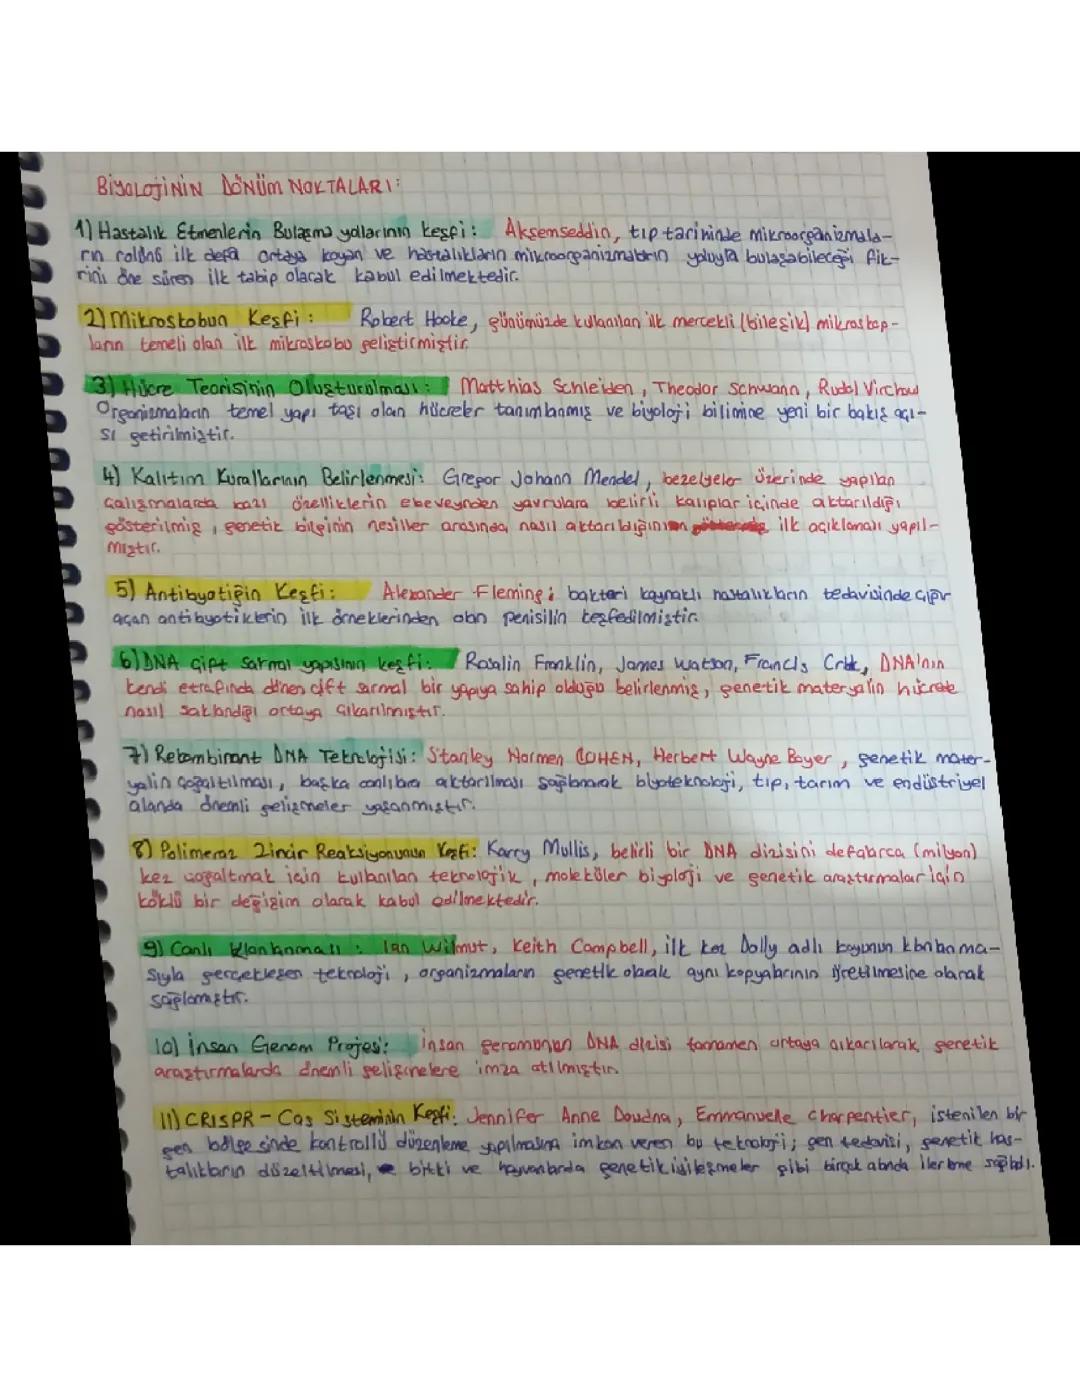 BİYOLOJİNİN DÖNÜM NOKTALARI:
1) Hastalık Etmenlerin Bulaşma yollarının keşfi: Akşemseddin, tıp tarihinde mikroorganizmala-
rın rolünü ilk defa ortaya koyan ve hastalıkların mikroorganizmaların yoluyla bulaşabileceği fik-
rini öne süren ilk tabip olarak kabul edilmektedir.
2) Mikroskobun Keşfi: Robert Hooke, günümüzde kullanılan ilk mercekli (bileşik) mikroskop-
ların temeli olan ilk mikroskobu geliştirmiştir.
3) Hücre Teorisinin Oluşturulması: Matthias Schleiden, Theodor Schwann, Rudol Virchow
Organizmaların temel yapı taşı olan hücreler tanımlanmış ve biyoloji bilimine yeni bir bakış açı-
sı getirilmiştir.
4) Kalıtım Kurallarının Belirlenmesi: Gregor Johann Mendel, bezelyeler üzerinde yapılan
çalışmalarda bazı özelliklerin ebeveynden yavrulara belirli kalıplar içinde aktarıldığı
gösterilmiş, genetik bilginin nesiller arasında nasıl aktarıldığının ilk açıklaması yapıl-
mıştır.
5) Antibyotiğin Keşfi: Alexander Fleming; bakteri kaynaklı hastalıkların tedavisinde çığır
açan antibyotiklerin ilk örneklerinden olan penisilin keşfedilmiştir.
6) DNA çift sarmal yapısının keşfi: Rosalin Franklin, James Watson, Francis Crick, DNA'nın
kendi etrafında dönen çift sarmal bir yapıya sahip olduğu belirlenmiş, genetik materyalin hücrede
nasıl saklandığı ortaya çıkarılmıştır.
7) Rekombinant DNA Teknolojisi: Stanley Normen COHEN, Herbert Wayne Boyer, genetik mater-
yalin çoğaltılması, başka canlılara aktarılması sağlanarak biyoteknoloji, tıp, tarım ve endüstriyel
alanda önemli gelişmeler yaşanmıştır.
8) Polimeraz Zincir Reaksiyonunun Keşfi: Karry Mullis, belirli bir DNA dizisini defalarca (milyon)
kez çoğaltmak için kullanılan teknolojik, moleküler biyoloji ve genetik araştırmalar için
köklü bir değişim olarak kabul edilmektedir.
9) Canlı Klonlanması: Ian Wilmut, Keith Campbell, ilk kez Dolly adlı koyunun klonlanma-
sıyla gerçekleşen teknoloji, organizmaların genetik olarak aynı kopyalarının üretilmesine olanak
sağlamıştır.
10) İnsan Genom Projesi: İnsan geromunun DNA dizisi tamamen ortaya çıkarılarak genetik
araştırmalarda önemli gelişmelere imza atılmıştır.
11) CRISPR - Cas Sisteminin Keşfi: Jennifer Anne Doudna, Emmanuelle Charpentier, istenilen bir
gen bölgesinde kontrollü düzenleme yapılmasına imkan veren bu teknoloji; gen tedavisi, genetik has-
talıkların düzeltilmesi, bitki ve hayvanlarda genetik iyileşmeler gibi birçok alanda ilerleme sağladı.